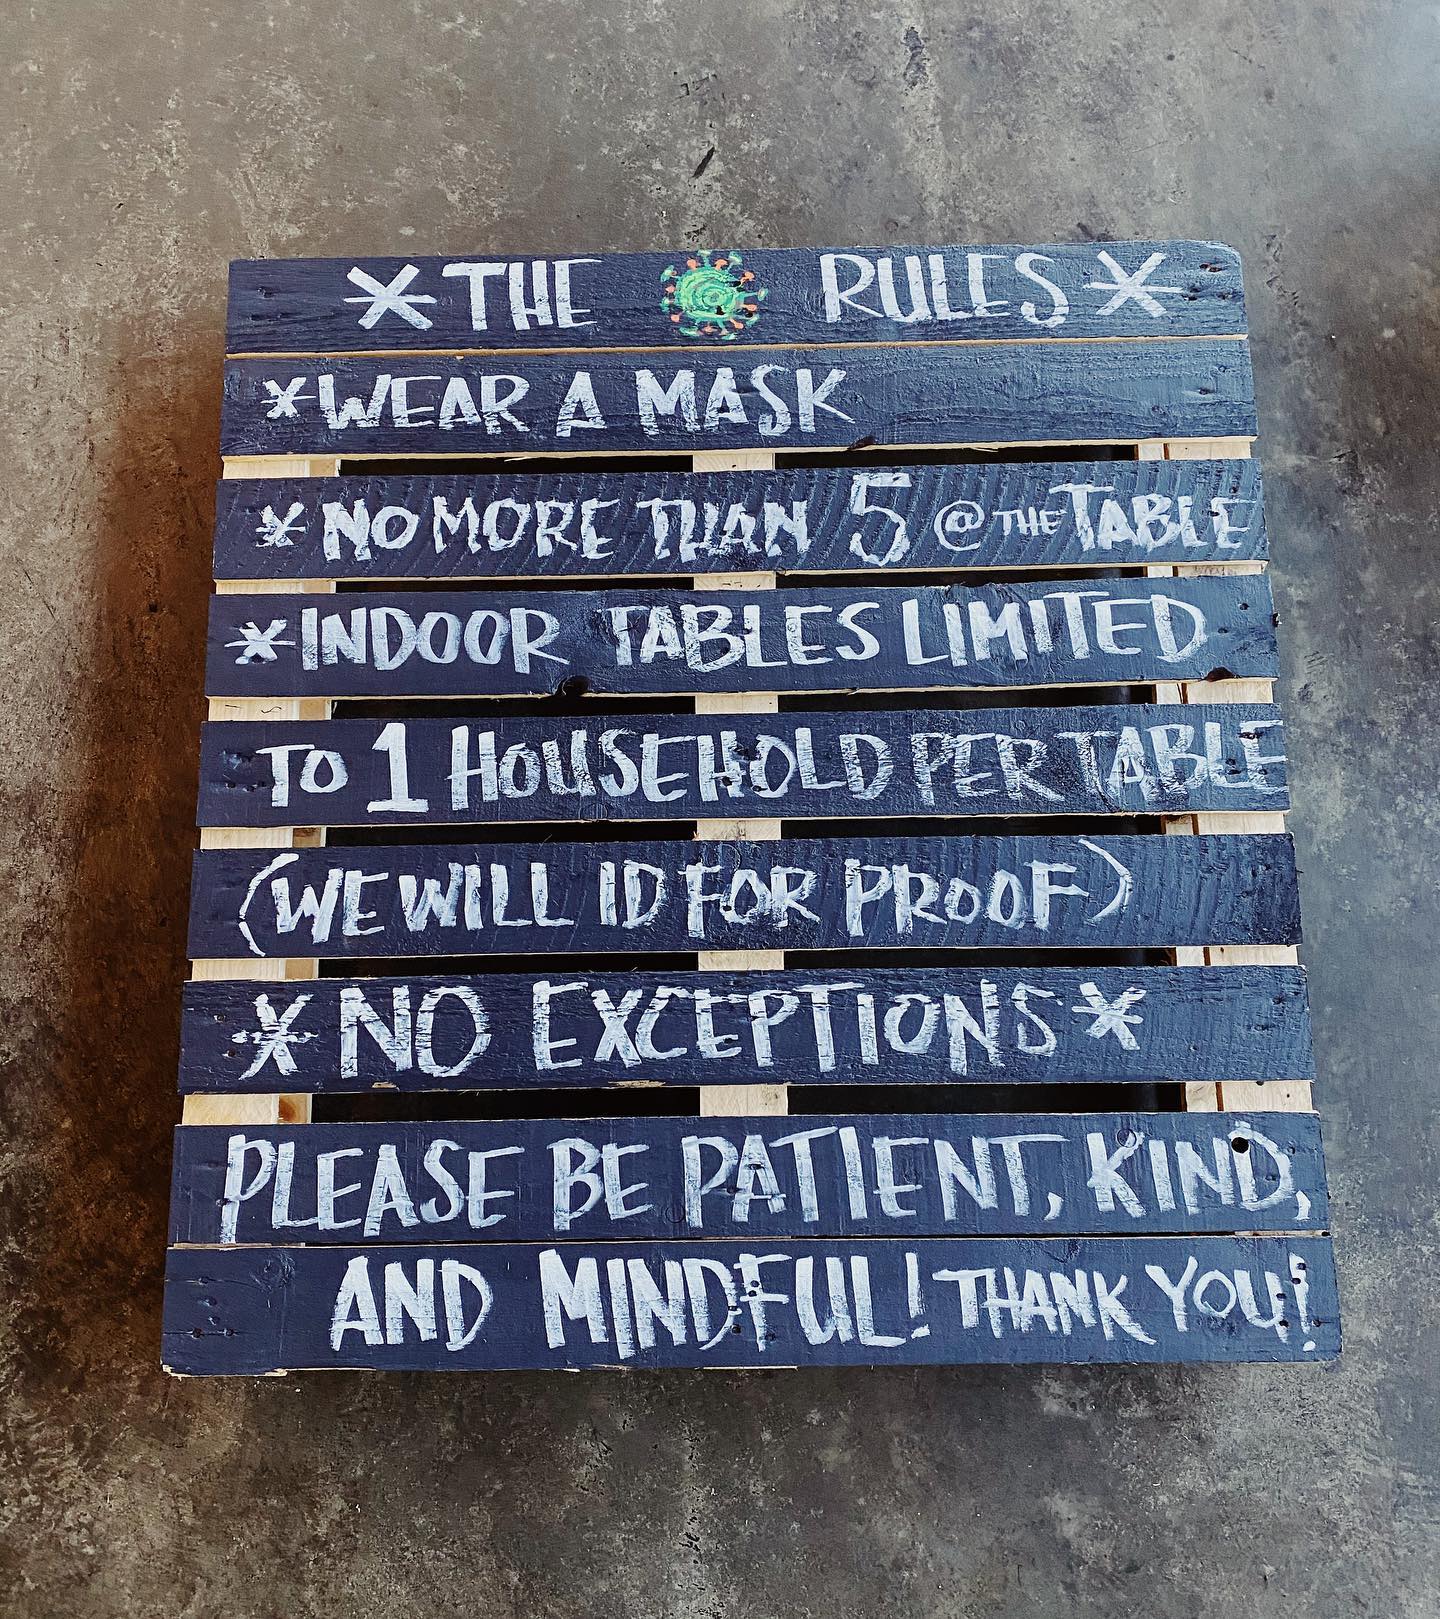 *THE RULES*
*WEAR A MASK
*NO MORE THAN 5 @ THE TABLE
*INDOOR TABLES LIMITED
TO 1 HOUSEHOLD PER TABLE
(WE WILL ID FOR PROOF)
*NO EXCEPTIONS*
PLEASE BE PATIENT, KIND,
AND MINDFUL! THANK YOU!